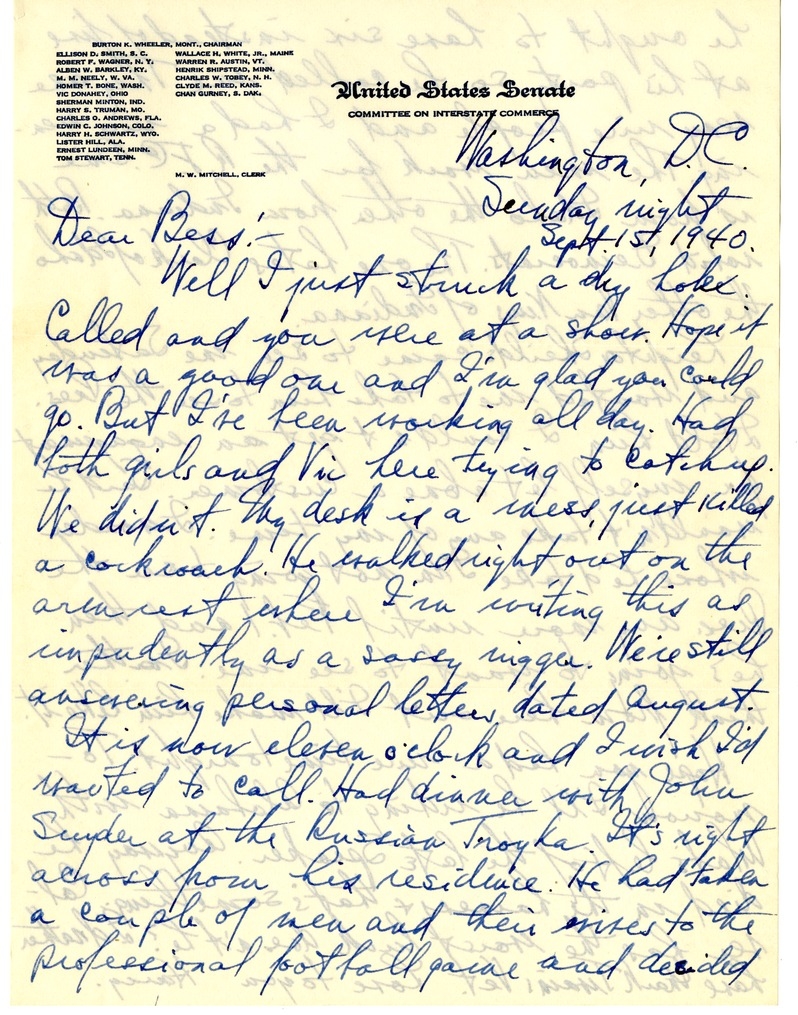 BURTON K. WHEELER, MONT., CHAIRMAN
ELLISON D. SMITH, S. C.
ROBERT F. WAGNER, N. Y.
ALBEN W. BARKLEY, KY.
M. M. NEELY, W. VA.
HOMER T. BONE, WASH.
VIC DONAHEY, OHIO
SHERMAN MINTON, IND.
HARRY S. TRUMAN, MO.
CHARLES O. ANDREWS, FLA.
EDWIN C. JOHNSON, COLO.
HARRY H. SCHWARTZ, WYO.
LISTER HILL, ALA.
ERNEST LUNDEEN, MINN.
TOM STEWART, TENN.
WALLACE H. WHITE, JR., MAINE
WARREN R. AUSTIN, VT.
HENRIK SHIPSTEAD, MINN.
CHARLES W. TOBEY, N. H.
CLYDE M. REED, KANS.
CHAN GURNEY, S. DAK.
M. W. MITCHELL, CLERK
United States Senate
COMMITTEE ON INTERSTATE COMMERCE
Washington, D.C.
Sunday night
Sept. 15, 1940.
Dear Bess:-
Well I just struck a dry hole.
Called and you were at a show. Hope it
was a good one and I'm glad you could
go. But I've been working all day. Had
both girls and Vic here trying to catch up.
We didn't. My desk is a mess, just killed
a cockroach. He walked right out on the
arm rest where I'm writing this as
impudently as a sassy nigger. We're still
answering personal letters dated August.
It is now eleven o'clock and I wish I'd
waited to call. Had dinner with John
Snyder at the Russian Troyka. It's right
across from his residence. He had taken
a couple of men and their wives to the
professional football game and decided